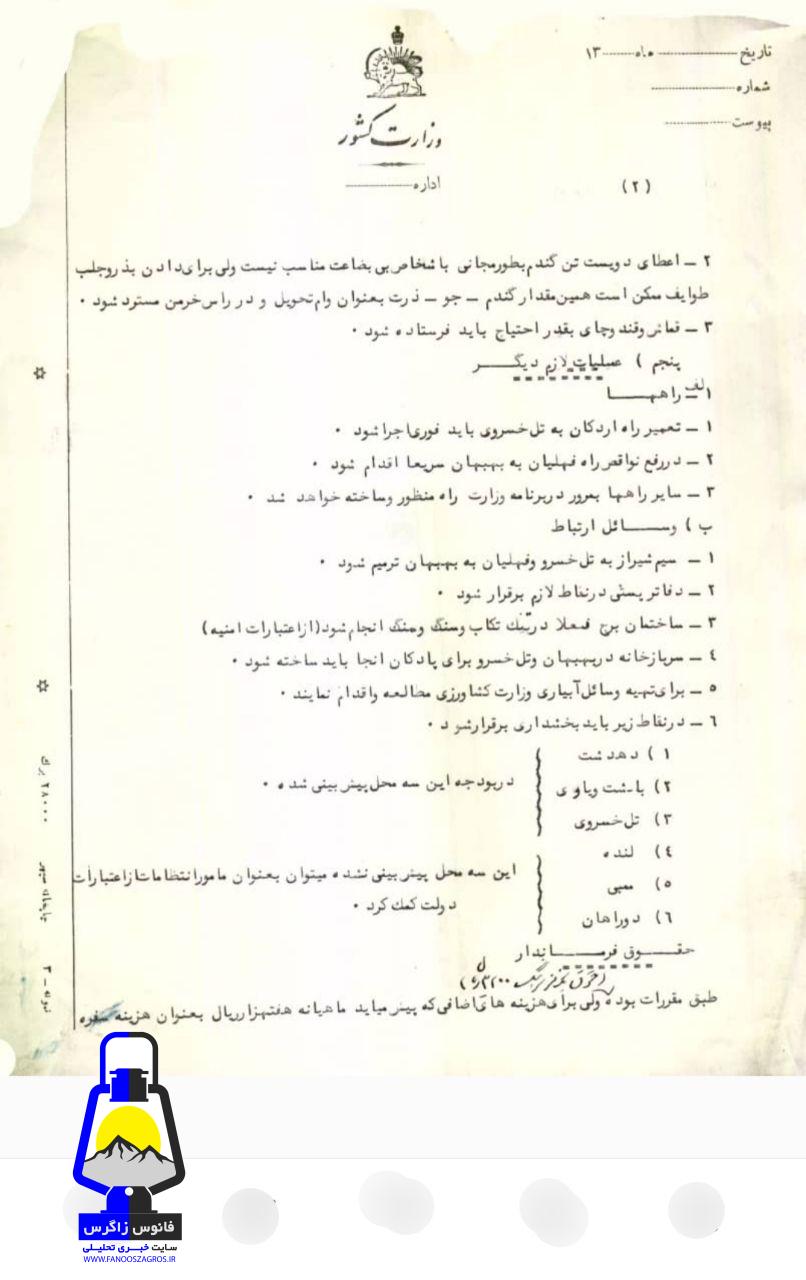 تاریخ ماه ۱۳
شماره
پیوست
وزارت کشور
اداره
(۲)
۲ ـ اعطای دویست تن گندم بطور مجانی باشخاص بی بضاعت مناسب نیست ولی برای دادن بذر وجلب
طوایف ممکن است همین مقدار گندم ـ جو ـ ذرت بعنوان وام تحویل و در راس خرمن مسترد شود .
۳ ـ قماش وقند وچای بقدر احتیاج باید فرستاده شود .
پنجم ) عملیات لازم دیگر
الف ـ راهها
۱ ـ تعمیر راه اردکان به تل خسروی باید فوری اجرا شود .
۲ ـ در رفع نواقص راه فهلیان به بهبهان سریعا اقدام شود .
۳ ـ سایر راهها بمرور در برنامه وزارت راه منظور وساخته خواهد شد .
ب ) وسائل ارتباط
۱ ـ سیم شیراز به تل خسرو وفهلیان به بهبهان ترمیم شود .
۲ ـ دفاتر پستی در نقاط لازم برقرار شود .
۳ ـ ساختمان برج فعلا در تنگ تکاب وسنگ ومنگ انجام شود (از اعتبارات امنیه)
٤ ـ سربازخانه در بهبهان وتل خسرو برای پادگان انجا باید ساخته شود .
۵ ـ برای تهیه وسائل آبیاری وزارت کشاورزی مطالعه واقدام نمایند .
٦ ـ در نقاط زیر باید بخشداری برقرار شود .
۱ ) دهدشت
۲) باشت وباوی
۳) تل خسروی
در بودجه این سه محل پیش بینی شده .
٤) لنده
۵) ممبی
٦) دوراهان
این سه محل پیش بینی نشده میتوان بعنوان مامور انتظامات از اعتبارات
دولت کمک کرد .
حقوق فرماندار
طبق مقررات بوده ولی برای هزینه های اضافی که پیش میاید ماهیانه هفتهزار ریال بعنوان هزینه سفره
نمونه ـ ۳
۲۸۰۰۰ برگ
فانوس زاگرس
سایت خبری تحلیلی
WWW.FANOOSZAGROS.IR